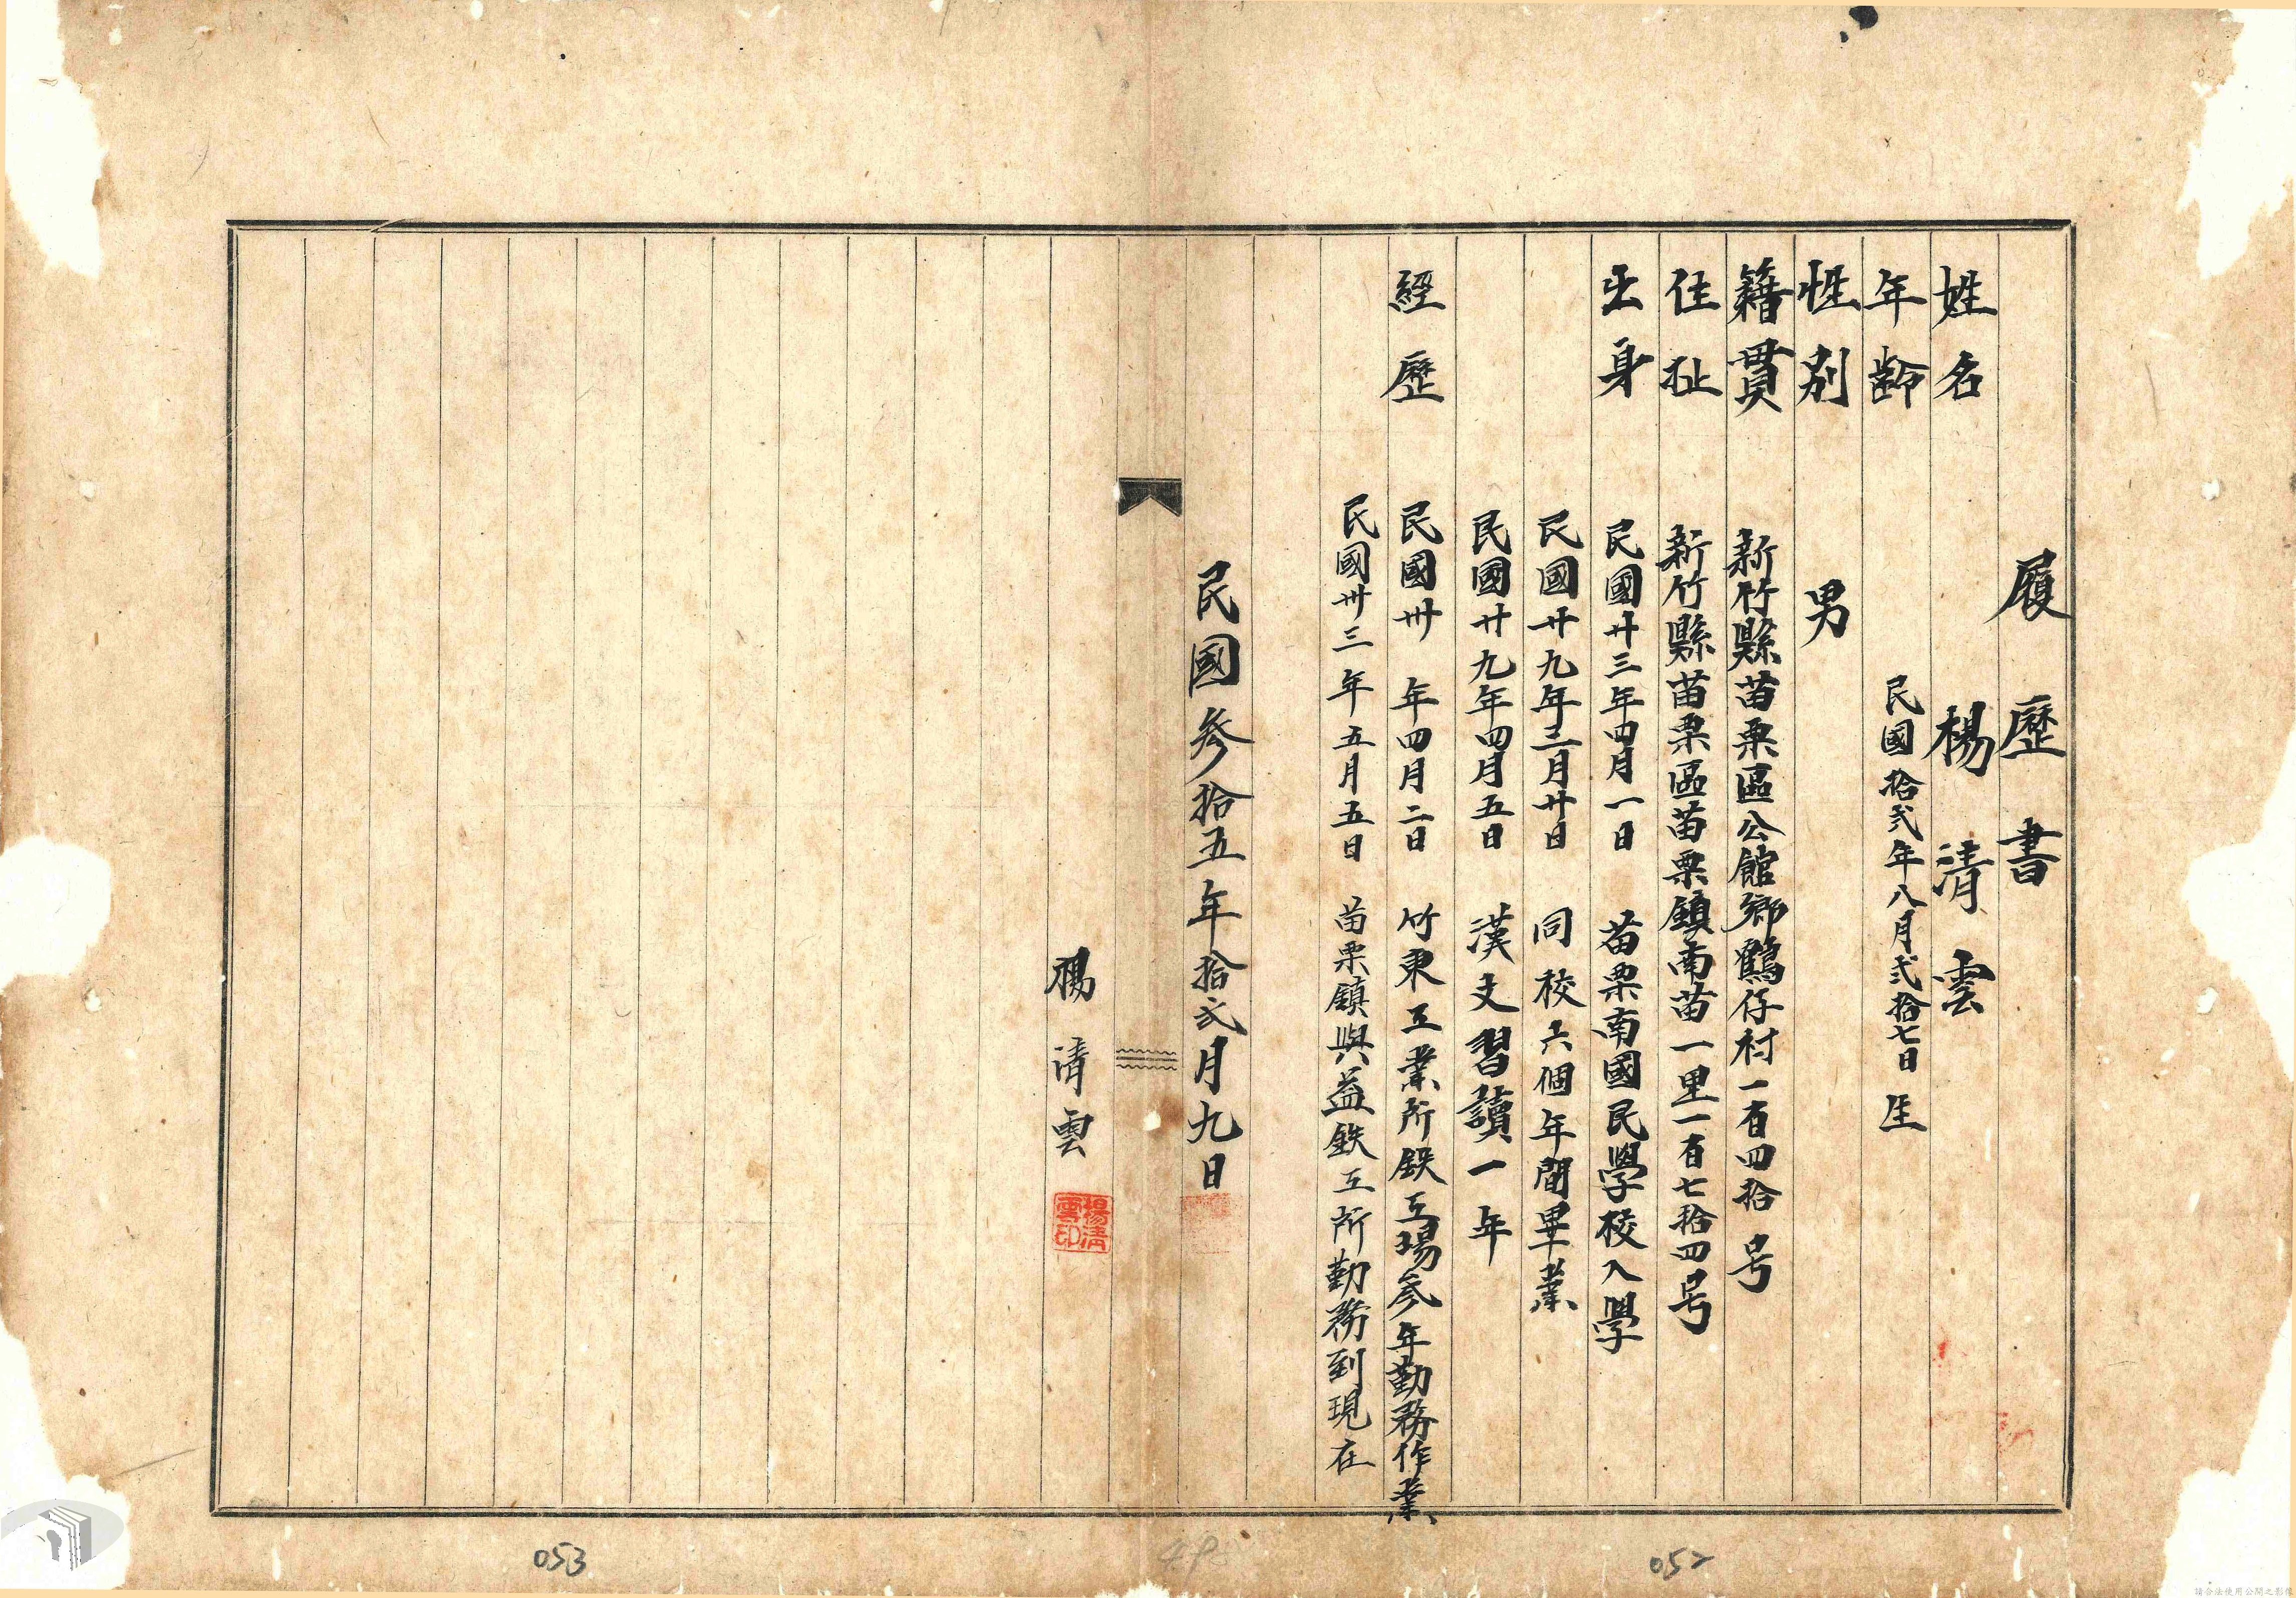 履歷書
姓名 楊清雲
年齡 民國拾弍年八月弍拾七日生
性別 男
籍貫 新竹縣苗栗區公館鄉鶴仔村一百四拾号
住址 新竹縣苗栗區苗栗鎮南苗一里一百七拾四号
出身 民國廿三年四月一日 苗栗南國民學校入學
民國廿九年三月廿日 同校六個年間畢業
民國廿九年四月五日 漢文習讀一年
經歷 民國卅 年四月二日 竹東工業所鉄工場參年勤務作業
民國卅三年五月五日 苗栗鎮興益鉄工所勤務到現在
民國參拾五年拾弍月九日
楊清雲
楊清雲印
052
053
請合法使用公開之影像